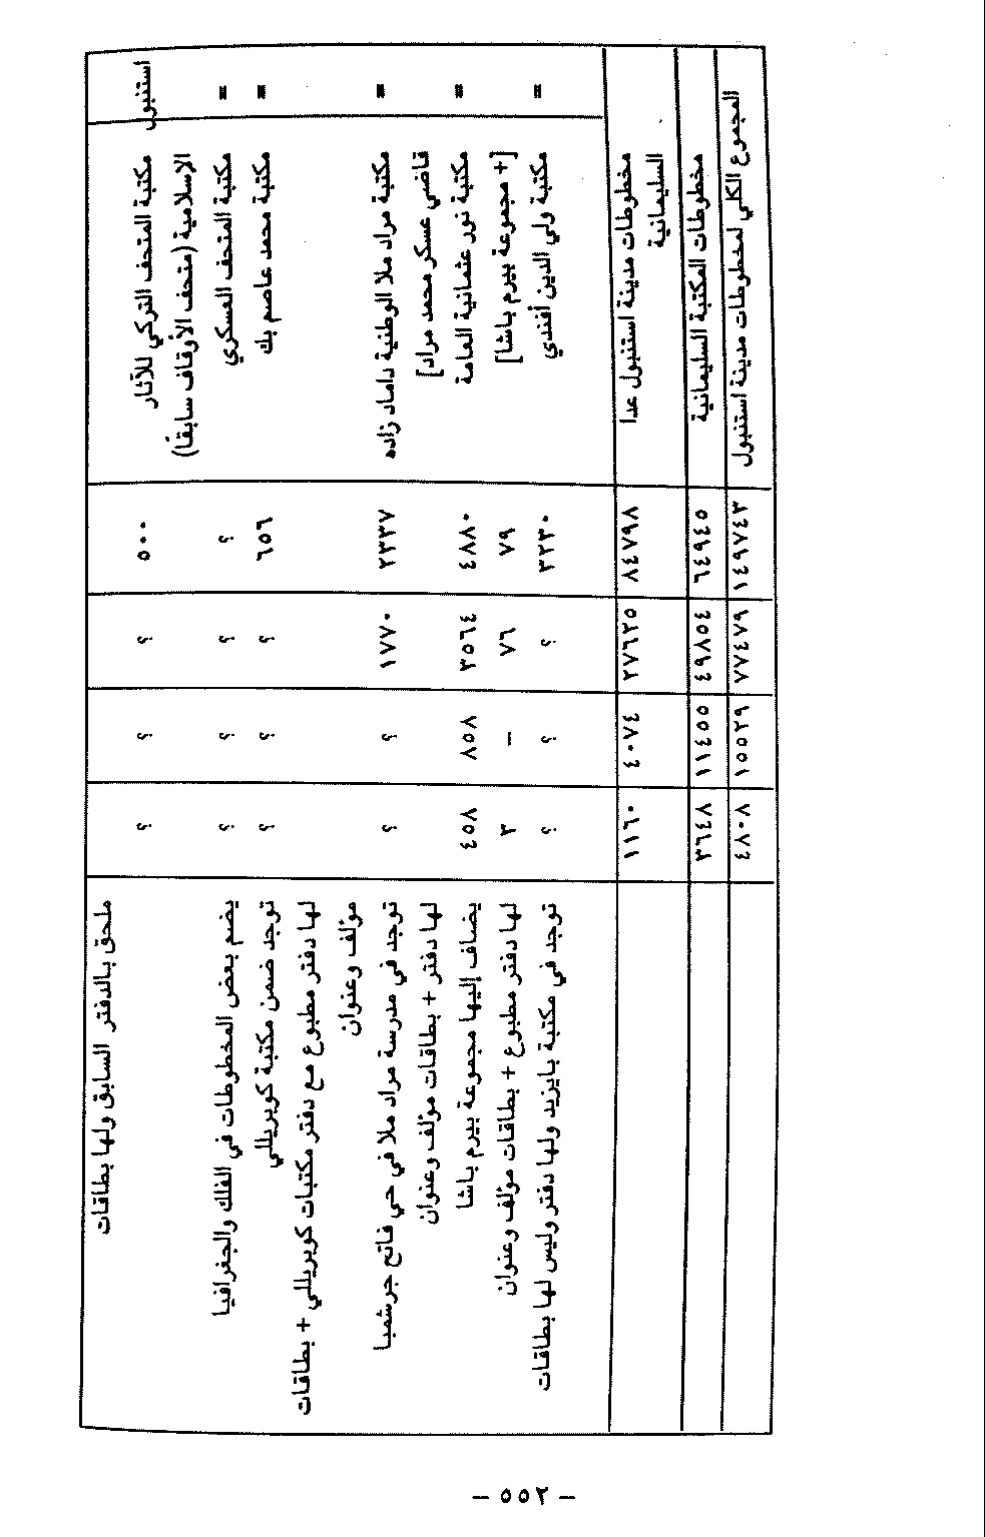 استنبول	مكتبة المتحف التركي للآثار	٥٠٠	؟	؟	؟	ملحق بالدفتر السابق ولها بطاقات
الإسلامية (متحف الأوقاف سابقاً)
=	مكتبة المتحف العسكري	؟	؟	؟	؟	يضم بعض المخطوطات في الفلك والجغرافيا
=	مكتبة محمد عاصم بك	٦٥٦	؟	؟	؟	توجد ضمن مكتبة كوبريللي
لها دفتر مطبوع مع دفتر مكتبات كوبريللي + بطاقات
مؤلف وعنوان
=	مكتبة مراد ملا الوطنية داماد زاده	٢٣٣٧	١٧٧٠	؟	؟	توجد في مدرسة مراد ملا في حي فاتح جرشمبا
قاضي عسكر محمد مراد]	لها دفتر + بطاقات مؤلف وعنوان
=	مكتبة نور عثمانية العامة	٤٨٨٠	٣٥٦٤	٧٥٧	٤٥٧	يضاف إليها مجموعة بيرم باشا
[+ مجموعة بيرم باشا]	٧٩	٧٦	–	٣	لها دفتر مطبوع + بطاقات مؤلف وعنوان
=	مكتبة ولي الدين أفندي	٣٢٣٠	؟	؟	؟	توجد في مكتبة بايزيد ولها دفتر وليس لها بطاقات
مخطوطات مدينة استنبول عدا	٨٤٧٩٨	٢٧٦٢٥	٤٠٧٤	١١٦٠
السليمانية
مخطوطات المكتبة السليمانية	٦٤٩٤٥	٤٩٨٥٤	١١٤٥٥	٣٦٤٧
المجموع الكلي لمخطوطات مدينة استنبول	١٤٩٧٤٣	٧٧٤٧٩	١٥٥٢٩	٤٨٠٧
– ٥٥٢ –